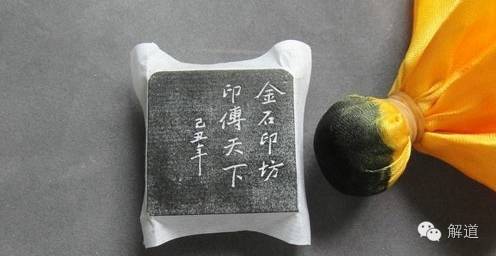 金石印坊
印傳天下
己丑年
解道